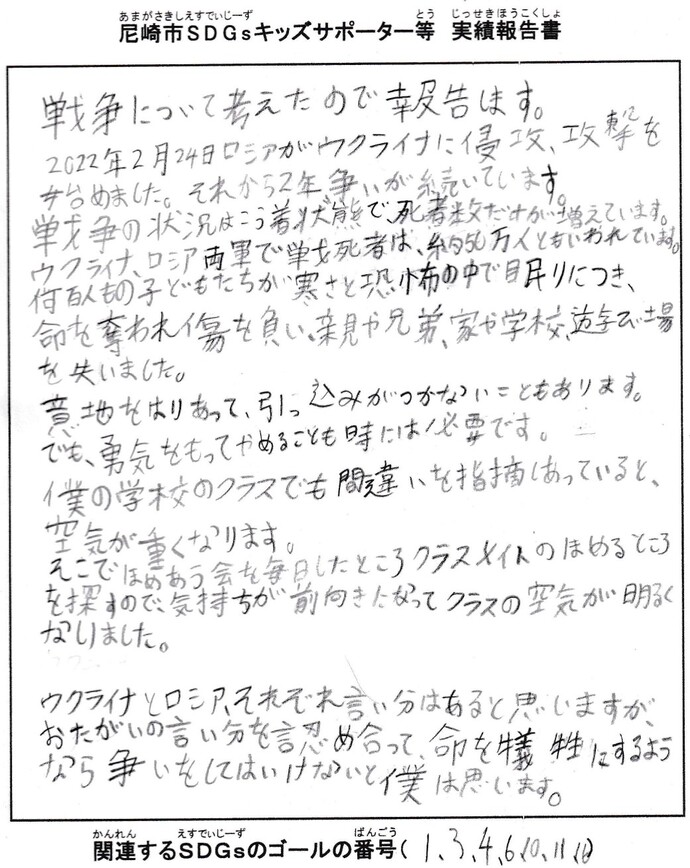 あまがさきしえすでぃじーず とう じっせきほうこくしょ
尼崎市SDGsキッズサポーター等 実績報告書
戦争について考えたので報告します。
2022年2月24日ロシアがウクライナに侵攻、攻撃を
始めました。それから2年、争いが続いています。
戦争の状況はこう着状態で、死者数だけが増えています。
ウクライナ、ロシア両軍で戦死者は、約50万人ともいわれています。
何百人もの子どもたちが寒さと恐怖の中で眠りにつき、
命を奪われ傷を負い、親や兄弟、家や学校、遊び場
を失いました。
意地をはりあって、引っ込みがつかないこともあります。
でも、勇気をもってやめることも時には必要です。
僕の学校のクラスでも間違いを指摘しあっていると、
空気が重くなります。
そこでほめあう会を毎日したところクラスメイトのほめるところ
を探すので、気持ちが前向きになってクラスの空気が明るく
なりました。
ウクライナとロシア、それぞれ言い分はあると思いますが、
おたがいの言い分を認め合って、命を犠牲にするよう
なら争いをしてはいけないと僕は思います。
かんれん えすでぃじーず ばんごう
関連するSDGsのゴールの番号( 1,3,4,6,10,11,16